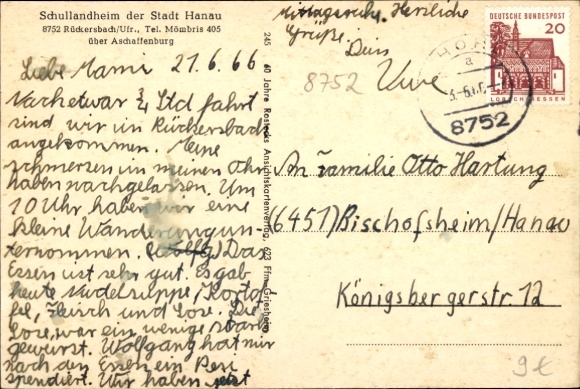 Schullandheim der Stadt Hanau
8752 Rückersbach/Ufr., Tel. Mömbris 405
über Aschaffenburg
Liebe Mami 21.6.66
Nach etwa ¾ Std fahrt
sind wir in Rückersbach
angekommen. Meine
schmerzen in meinen Ohr
haben nachgelassen. Um
10 Uhr haben wir eine
kleine Wanderung un-
ternommen. Das
Essen ist sehr gut. Es gab
heute Nudelsuppe, Kartof-
fel, Fleisch und Sose. Die
Sose, war ein wenig stark
gewürst. Wolfgang hat mir
nach den Essen ein
spendiert. Wir haben jetzt
Mittagsruhe. Herzliche
Grüße.
Dein
Uwe
8752
245 60 Jahre Ansichtskartenverlag, 623 Ffm.-Griesheim
DEUTSCHE BUNDESPOST
20
LORSCH/HESSEN
a
8752
An Familie Otto Hartung
(6451) Bischofsheim/Hanau
Königsbergerstr. 12
9€